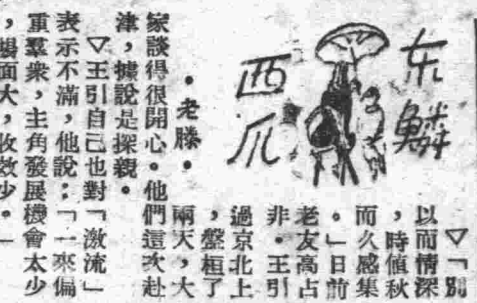 东鳞
西爪
・老滕・
▽「別
以而情深
，時値秋
而久感集
。」日前
老友高占
非・王引
過京北上
，盤桓了
兩天，大
家談得很開心。他們這次赴
津，據說是探親。
▽王引自己也對「激流」
表示不滿，他說：「一來偏
重羣衆，主角發展機會太少
，場面大，收效少。」